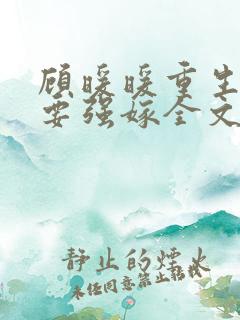 顾暖暖重生
要强嫁全文
静止的烟火
未经同意禁止转载